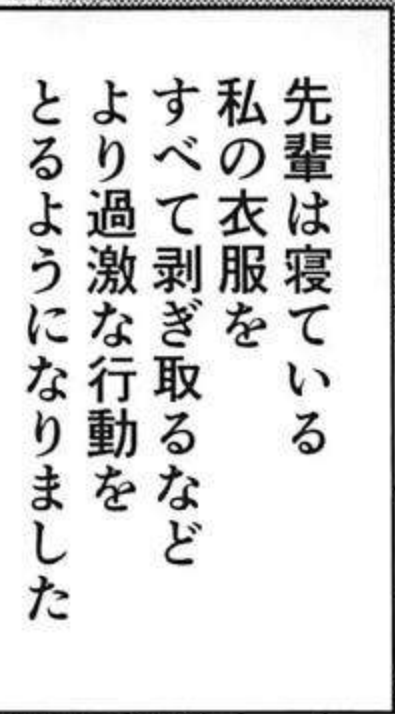 先輩は寝ている
私の衣服を
すべて剥ぎ取るなど
より過激な行動を
とるようになりました